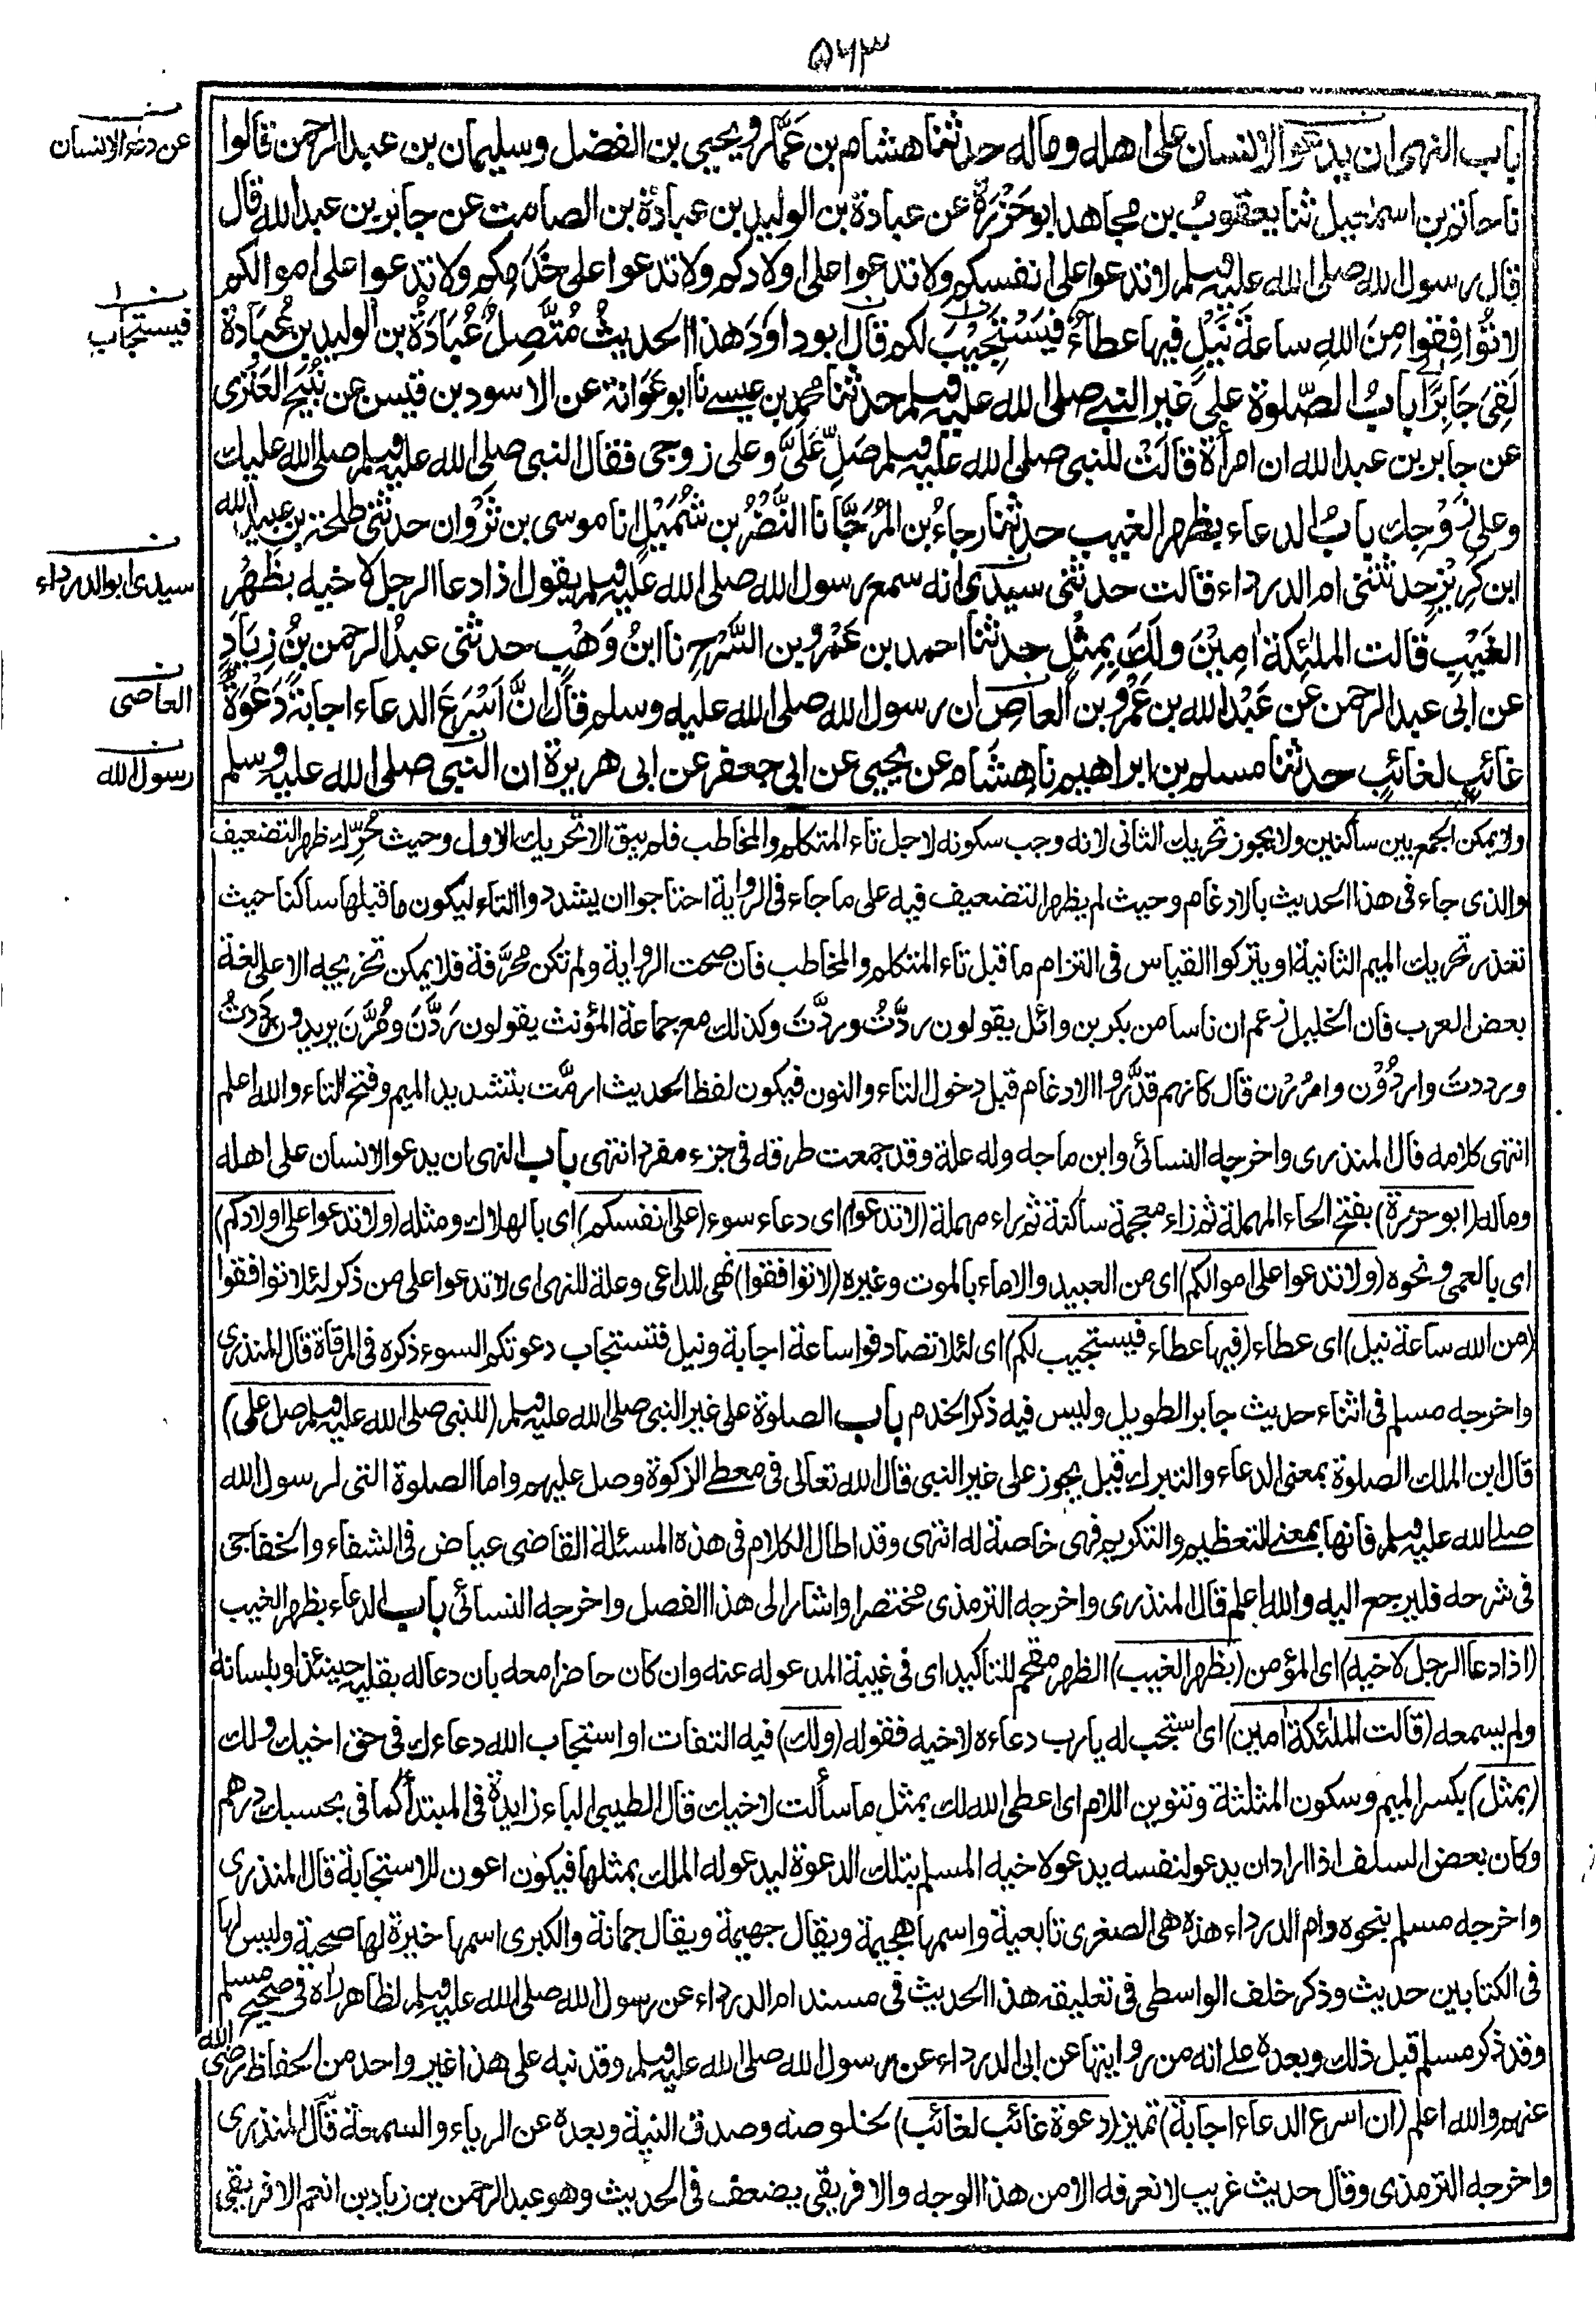 ٥٦٣
باب النهى ان يدعو الانسان على اهله وماله حدثنا هشام بن عَمَّار ويحيى بن الفضل وسليمان بن عبد الرحمن قالوا
عن دعاء الانسان
نا حاتم بن اسمٰعيل ثنا يعقوبُ بن مجاهد ابو حَزْرَةَ عن عبادة بن الوليد بن عبادة بن الصامت عن جابر بن عبد الله قال
قال رسول الله صلى الله عليه وسلم لا تدعوا على انفسكم ولا تدعوا على اولادكم ولا تدعوا على خَدَمِكم ولا تدعوا على اموالكم
لا تُوَافِقوا مِنَ اللهِ ساعةَ نَيْلٍ فيها عطاءٌ فَيَسْتَجِيْبَ لكم قال ابو داودَ هذا الحديثُ مُتَّصِلٌ عُبَادَةُ بن الوليدِ بن عُبَادَةَ
فيستجاب
لَقِىَ جَابِرًا بابُ الصّلوة على غير النبى صلى الله عليه وسلم حدثنا محمد بن عيسى نا ابو عَوَانة عن الاسود بن قيس عن نُبَيْحٍ العَنَزى
عن جابر بن عبد الله ان امرأة قالت للنبى صلى الله عليه وسلم صَلِّ عَلَىَّ وعلى زوجى فقال النبى صلى الله عليه وسلم صلى الله عليك
وعلى زَوْجِك بابُ الدعاء بظهر الغيب حدثنا رجاءُ بن المُرَجَّا نا النَّضْرُ بن شُمَيْلٍ انا موسى بن ثَرْوان حدثنى طلحة بن عبيد الله
ابن كَرِيْزٍ حدثتنى ام الدرداء قالت حدثنى سيدى انه سمع رسول الله صلى الله عليه وسلم يقول اذا دعا الرجل لاخيه بظَهْرِ
سيدى ابو الدرداء
الغَيْبِ قالت الملٰئكة اٰمِيْنَ ولَكَ بِمِثْلٍ حدثنا احمد بن عَمْرو بن السَّرْحِ نا ابنُ وَهْبٍ حدثنى عبدُ الرحمن بنُ زِيَادٍ
عن ابى عبد الرحمن عن عَبْدِ الله بن عَمْرِو بن العاصِ ان رسول الله صلى الله عليه وسلم قال انَّ اَسْرَعَ الدعاء اجابةً دَعْوَةُ
العاصى
غائبٍ لغائبٍ حدثنا مسلم بن ابراهيم نا هِشَام عن يحيى عن ابى جعفر عن ابى هريرة ان النبى صلى الله عليه وسلم
رسول الله
ولا يمكن الجمع بين ساكنين ولا يجوز تحريك الثانى لانه وجب سكونه لاجل تاء المتكلم والمخاطب فلم يبق الا تحريك الاول وحيث حُرِّك ظهر التضعيف
والذى جاء فى هذا الحديث بالادغام وحيث لم يظهر التضعيف فيه على ما جاء فى الرواية احتاجوا ان يشددوا التاء ليكون ما قبلها ساكنا حيث
تعذر تحريك الميم الثانية او يتركوا القياس فى التزام ما قبل تاء المتكلم والمخاطب فان صحت الرواية ولم تكن محرَّفة فلا يمكن تخريجه الا على لغة
بعض العرب فان الخليل زعم ان ناسا من بكر بن وائل يقولون ردَّتُ وردَّتَ وكذلك مع جماعة المؤنث يقولون رَدَّنَ ومُرَّنَ يريدون رددتُ
ورددتَ واردُدْن وامرُرْن قال كانهم قدَّروا الادغام قبل دخول التاء والنون فيكون لفظ الحديث ارمَّت بتشديد الميم وفتح التاء والله اعلم
انتهى كلامه قال المنذرى واخرجه النسائى وابن ماجه وله علة وقد جمعت طرقه فى جزء مفرد انتهى باب النهى ان يدعو الانسان على اهله
وماله (ابو حزرة) بفتح الحاء المهملة ثم زاء معجمة ساكنة ثم راء مهملة (لا تدعوا) اى دعاء سوء (على انفسكم) اى بالهلاك ومثله (ولا تدعوا على اولادكم)
اى بالعمى ونحوه (ولا تدعوا على اموالكم) اى من العبيد والاماء بالموت وغيره (لا توافقوا) نهى للداعى وعلة للنهى اى لا تدعوا على من ذكر لئلا توافقوا
(من الله ساعة نيل) اى عطاء (فيها عطاء فيستجيب لكم) اى لئلا تصادفوا ساعة اجابة ونيل فتستجاب دعوتكم السوء ذكره فى المرقاة قال المنذرى
واخرجه مسلم فى اثناء حديث جابر الطويل وليس فيه ذكر الخدم باب الصلوة على غير النبى صلى الله عليه وسلم (للنبى صلى الله عليه وسلم صل على)
قال ابن الملك الصلوة بمعنى الدعاء والتبرك قيل يجوز على غير النبى قال الله تعالى فى معطى الزكوة وصل عليهم واما الصلوة التى لرسول الله
صلى الله عليه وسلم فانها بمعنى التعظيم والتكريم فهى خاصة له انتهى وقد اطال الكلام فى هذه المسئلة القاضى عياض فى الشفاء والخفاجى
فى شرحه فليرجع اليه والله اعلم قال المنذرى واخرجه الترمذى مختصرا واشار الى هذا الفصل واخرجه النسائى باب الدعاء بظهر الغيب
(اذا دعا الرجل لاخيه) اى المؤمن (بظهر الغيب) الظهر مقحم للتاكيد اى فى غيبة المدعو له عنه وان كان حاضرا معه بان دعا له بقلبه حينئذ او بلسانه
ولم يسمعه (قالت الملئكة امين) اى استجب له يا رب دعاءه لاخيه فقوله (ولك) فيه التفات او استجاب الله دعاءك فى حق اخيك ولك
(بمثل) بكسر الميم وسكون المثلثة وتنوين اللام اى اعطى الله لك بمثل ما سألت لاخيك قال الطيبى الباء زايدة فى المبتدأ كما فى بحسبك درهم
وكان بعض السلف اذا اراد ان يدعو لنفسه يدعو لاخيه المسلم بتلك الدعوة ليدعو له الملك بمثلها فيكون اعون للاستجابة قال المنذرى
واخرجه مسلم بنحوه وام الدرداء هذه هى الصغرى تابعية واسمها هجيمة ويقال جهيمة ويقال جمانة والكبرى اسمها خيرة لها صحبة وليس لها
فى الكتابين حديث وذكر خلف الواسطى فى تعليقه هذا الحديث فى مسند ام الدرداء عن رسول الله صلى الله عليه وسلم لظاهر راٰه فى صحيح مسلم
وقد ذكر مسلم قبل ذلك وبعده على انه من روايتها عن ابى الدرداء عن رسول الله صلى الله عليه وسلم وقد نبه على هذا غير واحد من الحفاظ رضى الله
عنهم والله اعلم (ان اسرع الدعاء اجابة) تميز (دعوة غائب لغائب) لخلوصه وصدق النية وبعده عن الرياء والسمعة قال المنذرى
واخرجه الترمذى وقال حديث غريب لا نعرفه الا من هذا الوجه والافريقى يضعف فى الحديث وهو عبد الرحمن بن زياد بن انعم الافريقى